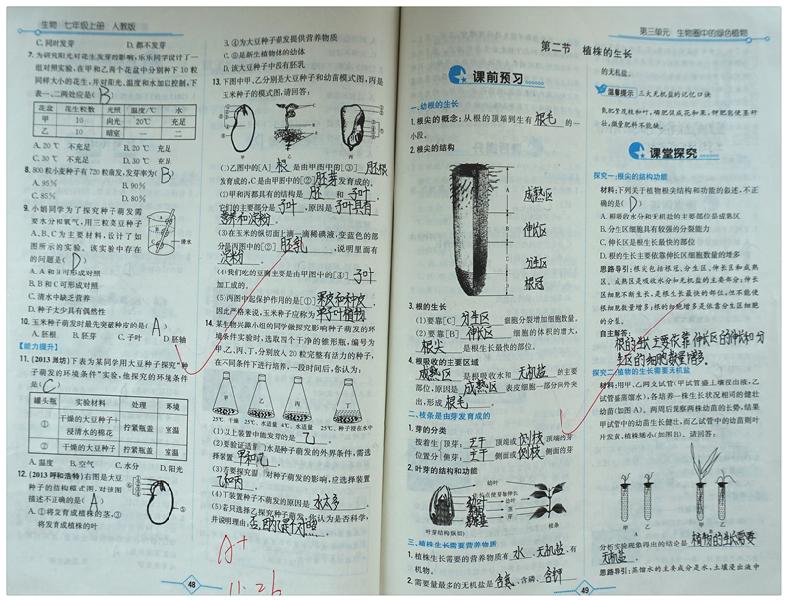 生物 七年级上册 人教版
C. 同时发芽 D. 都不发芽
7. 为研究阳光对花生发芽的影响,乐乐同学设计了一
组对照实验,在甲和乙两个花盆中分别种下10粒
同样大小的花生,并对阳光、温度和水加以控制,下
表一、二两处应是( B )
花盆 花生粒数 光照 温度/℃ 水
甲 10 向光 20℃ 充足
乙 10 暗室 一 二
A. 20℃ 不充足 B. 20℃ 充足
C. 30℃ 不充足 D. 30℃ 充足
8. 800粒小麦种子有720粒萌发,发芽率为( B )
A. 95% B. 90%
C. 85% D. 80%
9. 小娟同学为了探究种子萌发需
要水分和氧气,用三粒菜豆种子
A、B、C为主要材料,设计了如
图所示的实验。该实验中存在
的问题是( D )
清水
A. A和B可形成对照
B. B和C可形成对照
C. 清水中缺乏营养
D. 种子太少具有偶然性
10. 玉米种子萌发时最先突破种皮的是( A )
A. 胚根 B. 胚芽 C. 子叶 D. 胚轴
【能力提升】
11. (2013 潍坊)下表为某同学用大豆种子探究“种
子萌发的环境条件”实验,他探究的环境条件
是( C )
罐头瓶 实验材料 处理 环境
① 干燥的大豆种子+浸清水的棉花 拧紧瓶盖 室温
② 干燥的大豆种子 拧紧瓶盖 室温
A. 温度 B. 空气 C. 水分 D. 阳光
12. (2013 呼和浩特)右图是大豆
种子的结构模式图,对该图
描述不正确的是( A )
A. ①将发育成植株的茎,③
将发育成植株的叶
B. ④为大豆种子萌发提供营养物质
C. ⑤是新生植物体的幼体
D. 该大豆种子中没有胚乳
13. 下图中甲、乙分别是大豆种子和幼苗模式图,丙是
玉米种子的模式图,请回答:
甲 乙 丙
(1)乙图中的[A] 根 是由甲图中的[③] 胚根
发育成的,C是由甲图中的[②] 胚芽 发育成的。
(2)甲和丙都具有的结构是 胚 和 子叶 ,
它们的主要部分是 子叶 ,原因是 子叶具有
营养和淀粉
(3)在玉米的纵切面上滴一滴稀碘液,变蓝色的部
分是丙图中的[②] 胚乳 ,说明里面有
淀粉
(4)我们吃的豆腐主要是由甲图中的[④] 子叶
加工成的。
(5)丙图中起保护作用的是[①] 果皮和种皮 ,
因此严格来说,玉米种子应称为 单子叶植物
14. 某生物兴趣小组的同学做探究影响种子萌发的环
境条件实验时,选取四个干净的锥形瓶,编号为
甲、乙、丙、丁,分别放入20粒完整有活力的种子,
在不同条件下进行培养,一段时间后,各认为:
甲 乙 丙 丁
(1)以上装置中能发芽的是 乙 。
(2)要验证适量水是种子萌发的外界条件,需选
择装置 甲和乙 。
(3)若要探究温度对种子萌发的影响,应选择装置
乙和丙 。
(4)丁装置种子不萌发的原因是 水太多 。
48
A+
11.26
第三单元 生物圈中的绿色植物
第二节 植株的生长
课前预习
一、幼根的生长
1. 根尖的概念:从根的顶端到生有 根毛 的一
小段。
2. 根尖的结构
成熟区
伸长区
分生区
根冠
3. 根的生长
(1)要靠[C] 分生区 细胞分裂增加细胞数量。
(2)要靠[B] 伸长区 细胞的体积的增大,
根尖 是根生长最快的部位。
4. 根吸收的主要区域
成熟区 是根吸收水和 无机盐 的主要
部位,原因是 成熟区 表皮细胞一部分向外突
出,形成 根毛
二、枝条是由芽发育成的
1. 芽的分类
按着生 顶芽: 主干 顶端或 侧枝 顶端的芽
位置分 侧芽: 主干 侧面或 侧枝 侧面的芽
2. 叶芽的结构和功能
幼叶
叶芽结构(纵切) 枝条
三、植株生长需要营养物质
1. 植株生长需要的营养物质有 水、无机盐 、有
机物。
2. 需要量最多的无机盐是 含氮 、含磷、 含钾
的无机盐。
温馨提示 三大无机盐的记忆口诀
氮肥茎茂枝和叶,磷肥促成花和果,钾肥能使茎秆
壮,微量肥料不能缺。
课堂探究
探究一:根尖的结构功能
材料:下列关于植物根尖结构和功能的叙述,不正
确的是( D )
A. 根吸收水分和无机盐的主要部位是成熟区
B. 分生区细胞具有较强的分裂能力
C. 伸长区是根生长最快的部位
D. 根的生长主要依靠伸长区细胞数量的增多
思路导引:根尖包括根冠、分生区、伸长区和成熟
区。成熟区是吸收水分和无机盐的主要部分;伸长
区细胞不断生长,是根生长最快的部位,但不能使
根细胞数量增多;根的细胞增多是依靠分生区细胞
的分生。
自主解答:
根的生长主要依靠伸长区的伸长和分
生区的细胞数量增多。
探究二:植物的生长需要无机盐
材料:用甲、乙两支试管(甲试管盛土壤浸出液,乙
试管盛蒸馏水),各培养一株生长状况相同的健壮
幼苗(如图A)。两周后观察两株幼苗的长势,结果
甲试管中的幼苗生长健壮,而乙试管中的幼苗则叶
片发黄、植株矮小(如图B)。请回答:
甲 乙 甲 乙
A B
分析实验现象得出的结论是 植物的生长需要
无机盐 。
思路导引:蒸馏水的主要成分是水,土壤浸出液中
49